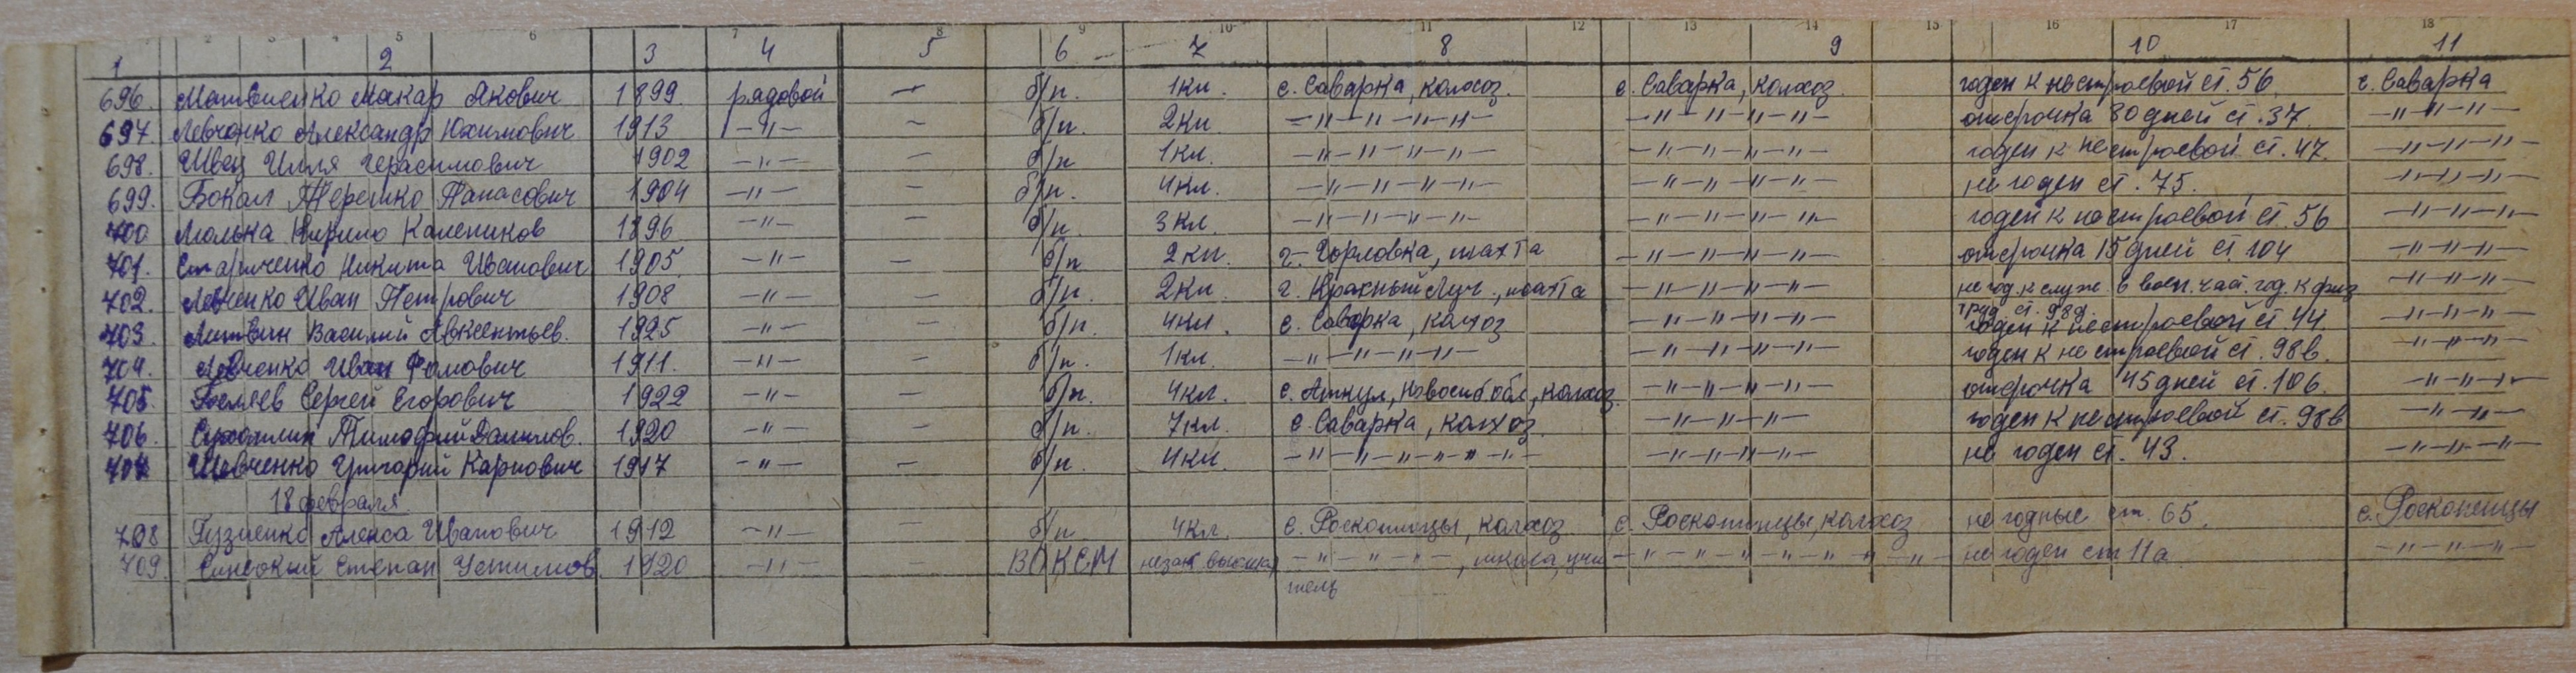 2 3 4 5 6 7 8 9 10 11 12 13 14 15 16 17 18
1 2 3 4 5 6 7 8 9 10 11
696. Матвиенко Макар Якович 1899 рядовой — б/п. 1 кл. с. Саварка, колхоз. с. Саварка, колхоз годен к нестроевой ст. 56 с. Саварка
697. Левченко Александр Юхимович 1913 —"— — б/п. 2 кл —"—"—"—"— —"—"—"—"— отсрочка 80 дней ст. 37. —"—"—"—
698. Швец Илля Герасимович 1902 —"— — б/п 1 кл. —"—"—"—"— —"—"—"—"— годен к нестроевой ст. 47. —"—"—"—
699. Бокал Терешко Панасович 1904 —"— — б/п. 4 кл. —"—"—"—"— —"—"—"—"— не годен ст. 75. —"—"—"—
700 Люлька Кирило Калеников 1896 —"— — б/п. 3 кл. —"—"—"—"— —"—"—"—"— годен к нестроевой ст. 56 —"—"—"—
701. Старченко Никита Иванович 1905. —"— — б/п 2 кл. г. Горловка, шахта —"—"—"—"— отсрочка 15 дней ст. 104 —"—"—"—
702. Левченко Иван Петрович 1908 —"— — б/п. 2 кл. г. Красный Луч, шахта —"—"—"—"— не год. к служ. в воен. час. год. к физ
труд. ст. 98д. —"—"—"—
703. Литвин Василий Авксентьев. 1925 —"— — б/п. 4 кл. с. Саварка, колхоз —"—"—"—"— годен к нестроевой ст 44. —"—"—"—
704. Левченко Иван Фомович 1911. —"— — б/п. 1 кл. —"—"—"—"— —"—"—"—"— годен к не строевой ст. 98в. —"—"—"—
705. Беляев Сергей Егорович 1922 —"— — б/п. 4 кл. с. Новосиб. обл, колхоз. —"—"—"—"— отсрочка 45 дней ст. 106. —"—"—"—
706. Сухомлин Тимофий Данилов. 1920 —"— — б/п. 7 кл. с. Саварка, колхоз. —"—"—"— годен к нестроевой ст. 98в —"—"—
707 Шевченко Григорий Карпович 1917 —"— — б/п. 4 кл. —"—"—"—"—"— —"—"—"—"— не годен ст. 43. —"—"—"—
18 февраля.
708 Гузненко Алекса Иванович 1912 —"— — б/п 4 кл. с. Роскопинцы, колхоз с. Роскопинцы, колхоз не годные ст. 65. с. Роскопинцы
709. Степан Устимов. 1920 —"— — ВЛКСМ незак высшая —"—"—"—, школа, учи —"—"—"—"—"—"—"— не годен ст 11а —"—"—"—
тель